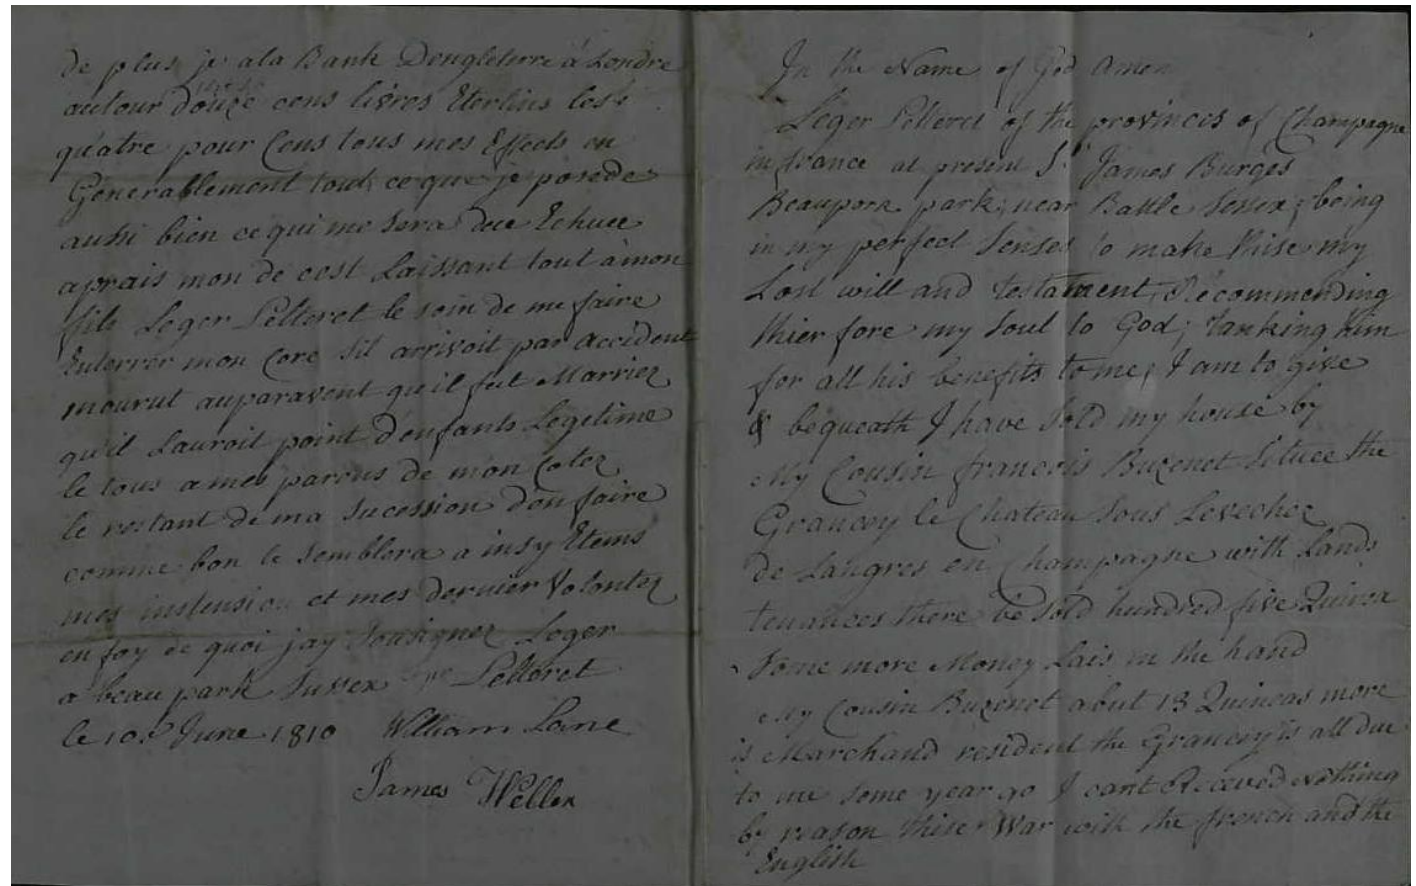 de plus je ala Bank Dengleterre á Londre
autour douze cens livres Sterlins les
quatre pour Cens tous mes Effects en
Generablement tout ce que je posede
aussi bien ce qui me sera due Echuee
aprais mon de cest Laissant tout à mon
fils Leger Pelleret le soin de me faire
Enterrer mon Core sil arrivoit par accident
mourut auparavent qu'il fut Marriez
qu'il Lauroit point d'enfants Legitime
le tous a mes parens de mon Cotez
le restant de ma Sucession d'en faire
comme bon le Semblera a insy Etems
mes instension et mes dernier Volontez
en foy de quoi jay Sousignez Leger
a beau park Sussex Pelleret
le 10 June 1810 William Lane
James Weller
In the Name of God Amen
Leger Pelleret of the provinces of Champagne
in france at present Sr James Burges
Beauporn park, near Battle Sessex; being
in my perfect Senses to make thise my
Lost will and Testatment, Recommending
thier fore my Soul to God; tanking him
for all his benefits to me, I am to give
& bequeath I have Sold my house by
My Cousin francois Buzenet Situee the
Grancey le Chateau Sous Levechez
de Langres en Champagne with Lands
tenances there be Sold hundred five Quinea
Some more Money Lais in the hand
My Cousin Buzenet abut 13 Quineas more
is Marchand resident the Grancey is all due
to me Some year go I cant Receved nothing
by reason thise War with the french and the
English